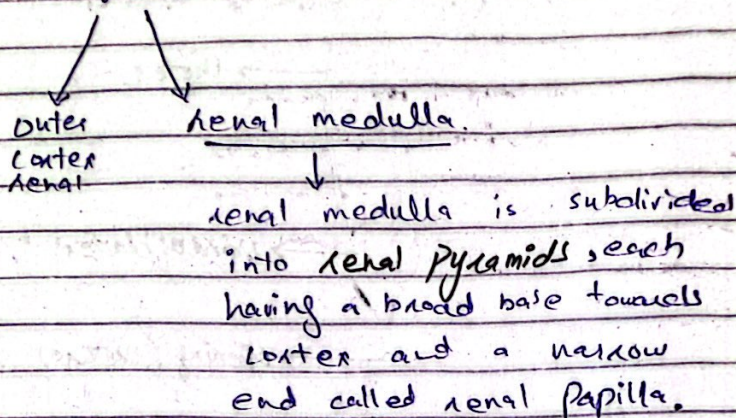 outer
cortex
renal
renal medulla.
renal medulla is subdivided
into renal pyramids, each
having a broad base towards
cortex and a narrow
end called renal papilla.